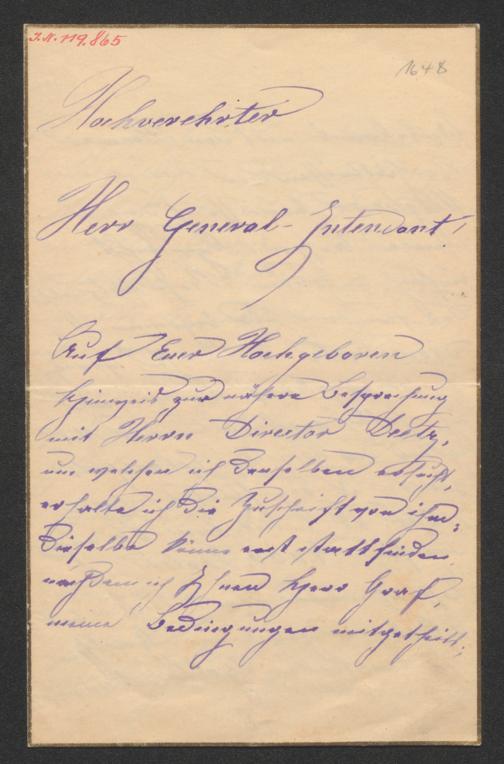 I.N. 119.865
1648
Hochverehrter
Herr General-Intendant!
Auf Euer Hochgeboren
Hinweis zur nähern Besprechung
mit Herrn Director Deetz,
um welchen ich denselben ersucht,
erhalte ich die Zuschrift von ihm,
dieselbe könne erst stattfinden
nachdem ich Ihnen Herr Graf,
meine Bedingungen mitgetheilt;